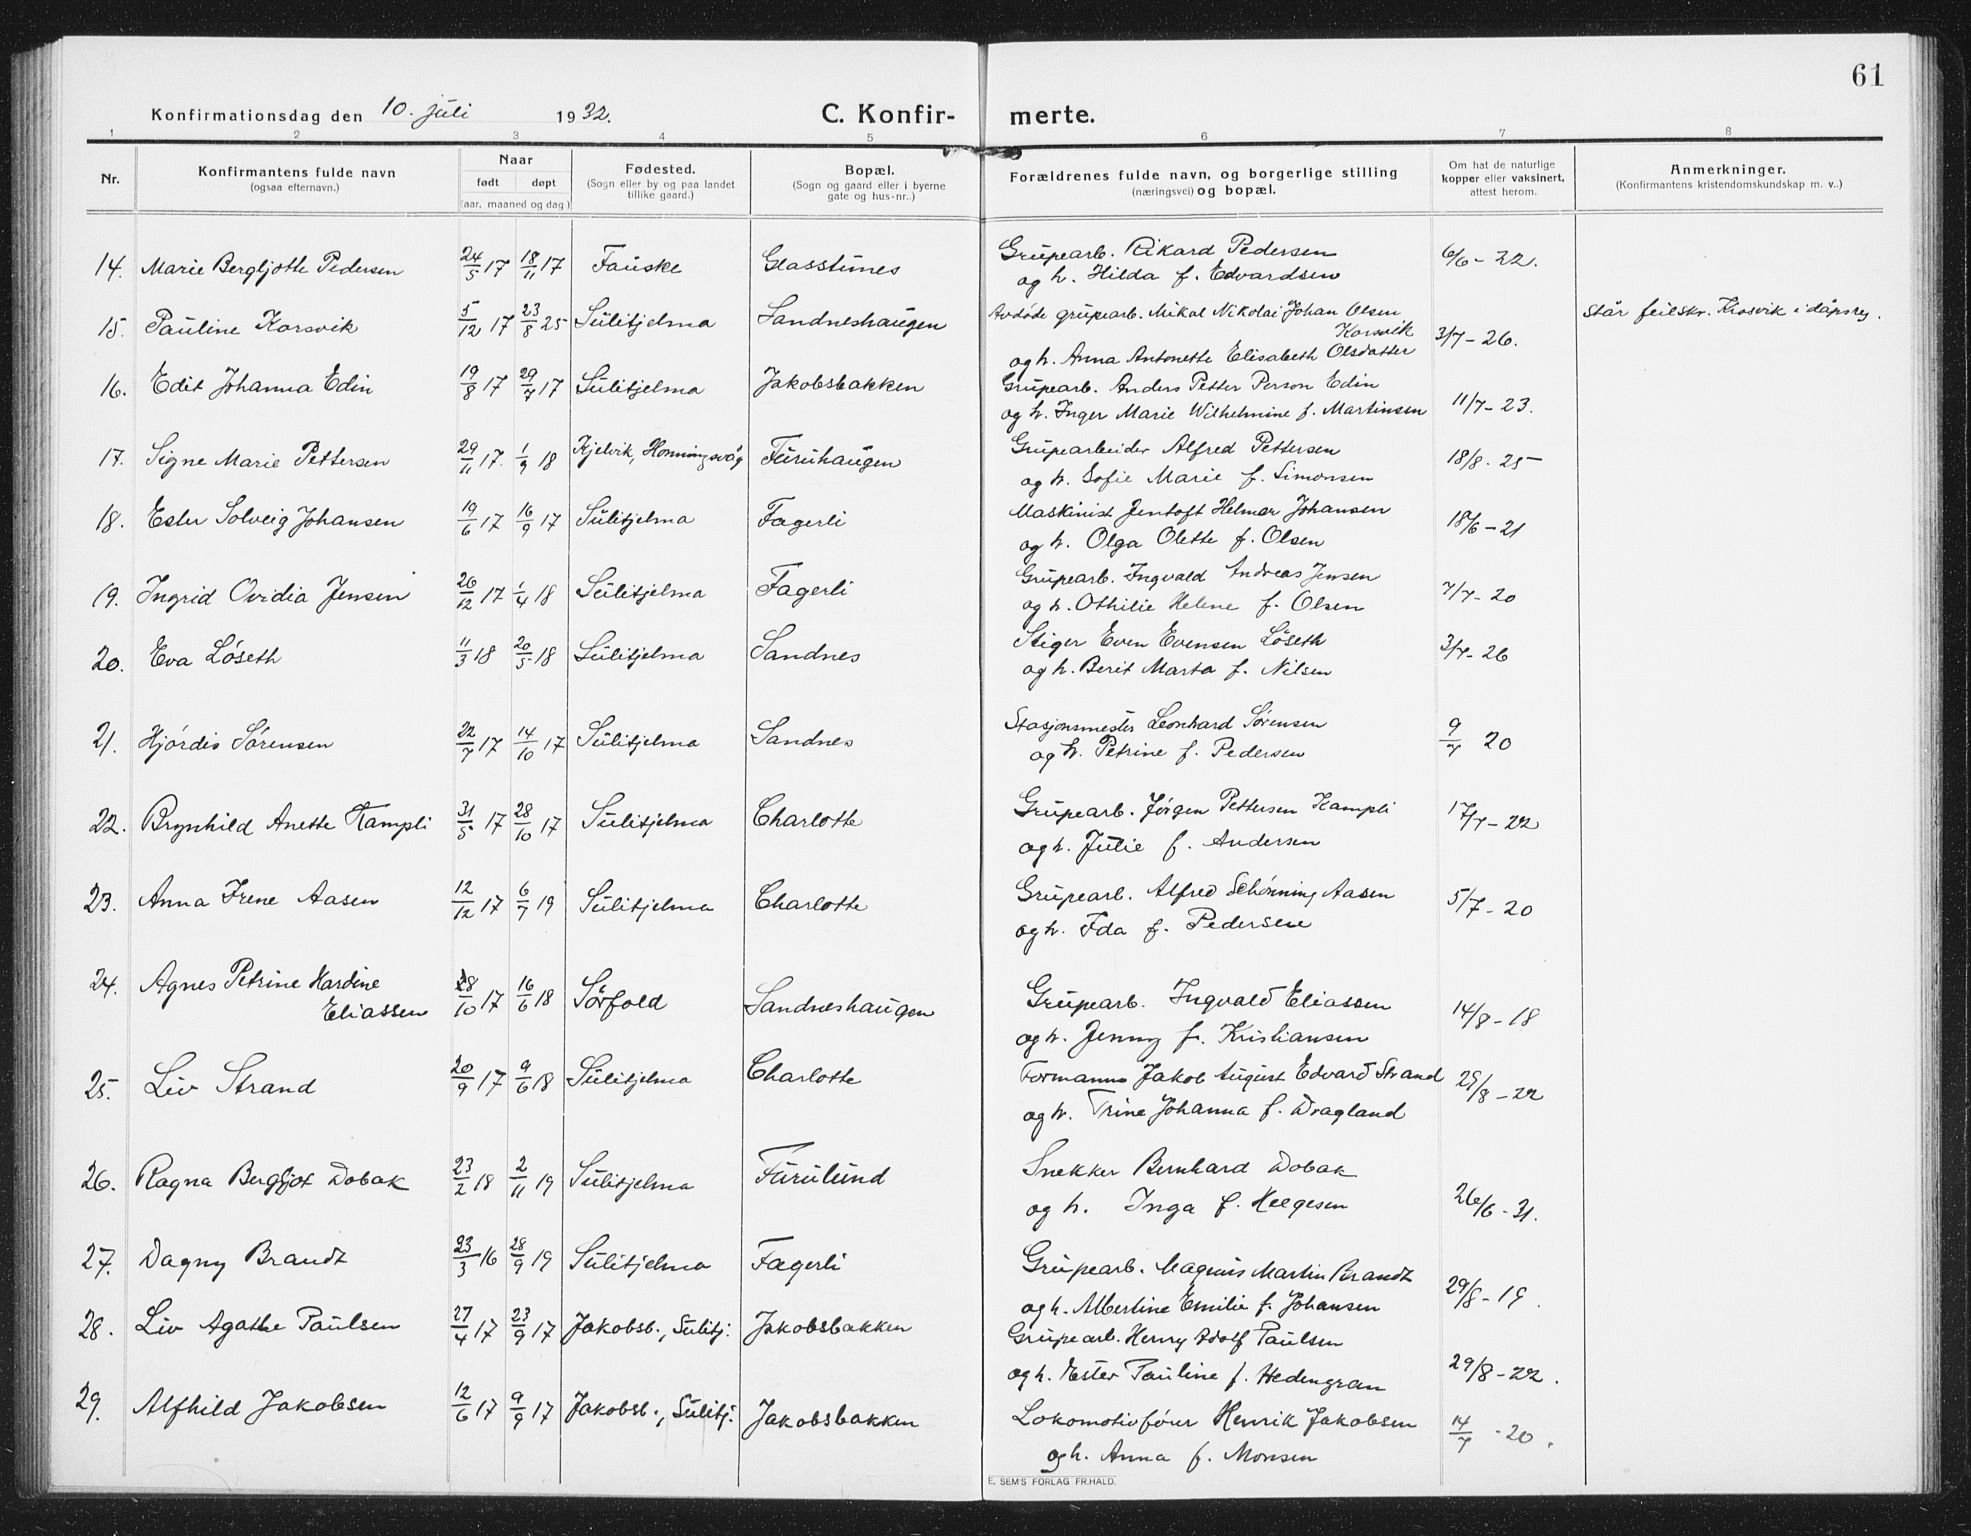 61
Konfirmationsdag den 10. juli 1932. C. Konfir- merte.
1 2 3 4 5 6 7 8
Nr. Konfirmantens fulde navn (ogsaa efternavn.) Naar født døpt (aar, maaned og dag) Fødested. (Sogn eller by og paa landet tillike gaard.) Bopæl. (Sogn og gaard eller i byerne gate og hus-nr..) Forældrenes fulde navn, og borgerlige stilling (næringsvei) og bopæl. Om hat de naturlige kopper eller vaksinert, attest herom. Anmerkninger. (Konfirmantens kristendomskundskap m. v..)
14. Marie Bergljotte Pedersen 24/5 17 18/11 17 Fauske Glasstunes Grupearb. Rikard Pedersen 6/6 - 22.
og h. Hilda f. Edvardsen
15. Pauline Korsvik 5/12 17 23/8 25 Sulitjelma Sandneshaugen Avdøde grupearb. Mikal Nikolai Johan Olsen Står feilskr. Krosvik i dåpsreg.
Korsvik 3/7 - 26.
og h. Anna Antonette Elisabeth Olsdatter
16. Edit Johanna Edin 19/8 17 29/7 17 Sulitjelma Jakobsbakken Grupearb. Anders Petter Person Edin
og h. Inger Marie Wilhelmine f. Martinsen 11/7 - 23.
17. Signe Marie Pettersen 29/11 17. 1/9 18 Kjelvik, Honningsvåg Furuhaugen Grupearbeider Alfred Pettersen 18/8 - 25
og h. Sofie Marie f. Simonsen
18. Ester Solveig Johansen 19/6 17 16/9 17 Sulitjelma Fagerli Maskinist Jentoft Helmer Johansen 18/6 - 21
og h. Olga Olette f. Olsen
19. Ingrid Ovidia Jensen 26/12 17 1/4 18 Sulitjelma Fagerli Grupearb. Ingvald Andreas Jensen 7/7 - 20
og h. Othilie Helene f. Olsen
20. Eva Løseth 11/3 18 20/5 18 Sulitjelma Sandnes Stiger Even Evensen Løseth 3/7 - 26
og h. Berit Marta f. Nilsen
21. Hjørdis Sørensen 22/7 17 14/10 17 Sulitjelma Sandnes Stasjonsmester Leonhard Sørensen 9/7 20
og h. Petrine f. Pedersen
22. Brynhild Anette Kampli 31/5 17 28/10 17 Sulitjelma Charlotte Grupearb. Jørgen Pettersen Kampli 17/7 - 22
og h. Julie f. Andersen
23. Anna Irene Aasen 12/12 17 6/7 19 Sulitjelma Charlotte Grupearb. Alfred Schønning Aasen 5/7 - 20
og h. Ida f. Pedersen
24. Agnes Petrine Hardine
Eliassen 28/10 17 16/6 18 Sørfold Sandneshaugen Grupearb. Ingvald Eliassen 14/8 - 18
og h. Jenny f. Kristiansen
25. Liv Strand 20/9 17 9/6 18 Sulitjelma Charlotte Formann Jakob August Edvard Strand 29/8 - 22
og h. Trine Johanna f. Dragland
26. Ragna Bergljot Dobak 23/2 18 2/11 19 Sulitjelma Furulund Snekker Bernhard Dobak
og h. Inga f. Helgesen 26/6 - 31.
27. Dagny Brandt 23/3 16 28/9 19 Sulitjelma Fagerli Grupearb. Magnus Martin Brandt 29/8 - 19.
og h. Albertine Emilie f. Johansen
28. Liv Agathe Paulsen 27/4 17 23/9 17 Jakobsb., Sulitj. Jakobsbakken Grupearb. Henry Adolf Paulsen
og h. Ester Pauline f. Hedengran 29/8 - 22.
29. Alfhild Jakobsen 12/6 17 9/9 17 Jakobsb., Sulitj. Jakobsbakken Lokomotivfører Henrik Jakobsen 14/7 - 20.
og h. Anna f. Monsen
E. SEM'S FORLAG FR.HALD.